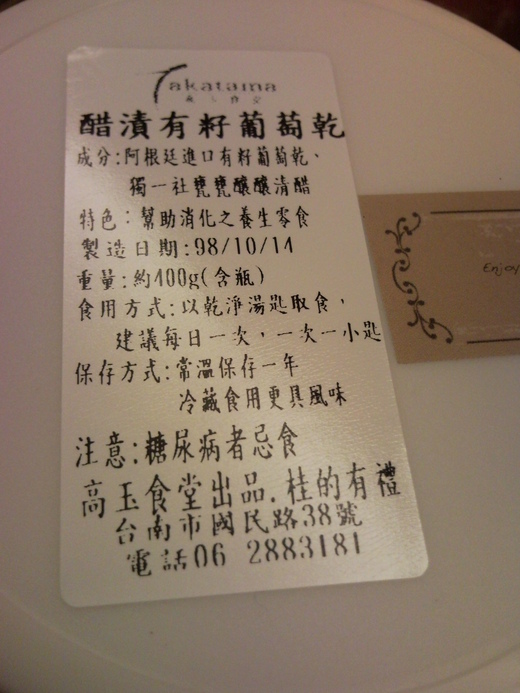 Takatama
醋漬有籽葡萄乾
成分:阿根廷進口有籽葡萄乾、
獨一社甕甕釀釀清醋
特色:幫助消化之養生零食
製造日期:98/10/14
重量:約400g(含瓶)
食用方式:以乾淨湯匙取食,
建議每日一次,一次一小匙
保存方式:常溫保存一年
冷藏食用更具風味
注意:糖尿病者忌食
高玉食堂出品.桂的有禮
台南市國民路38號
電話06 2883181
Enjoy